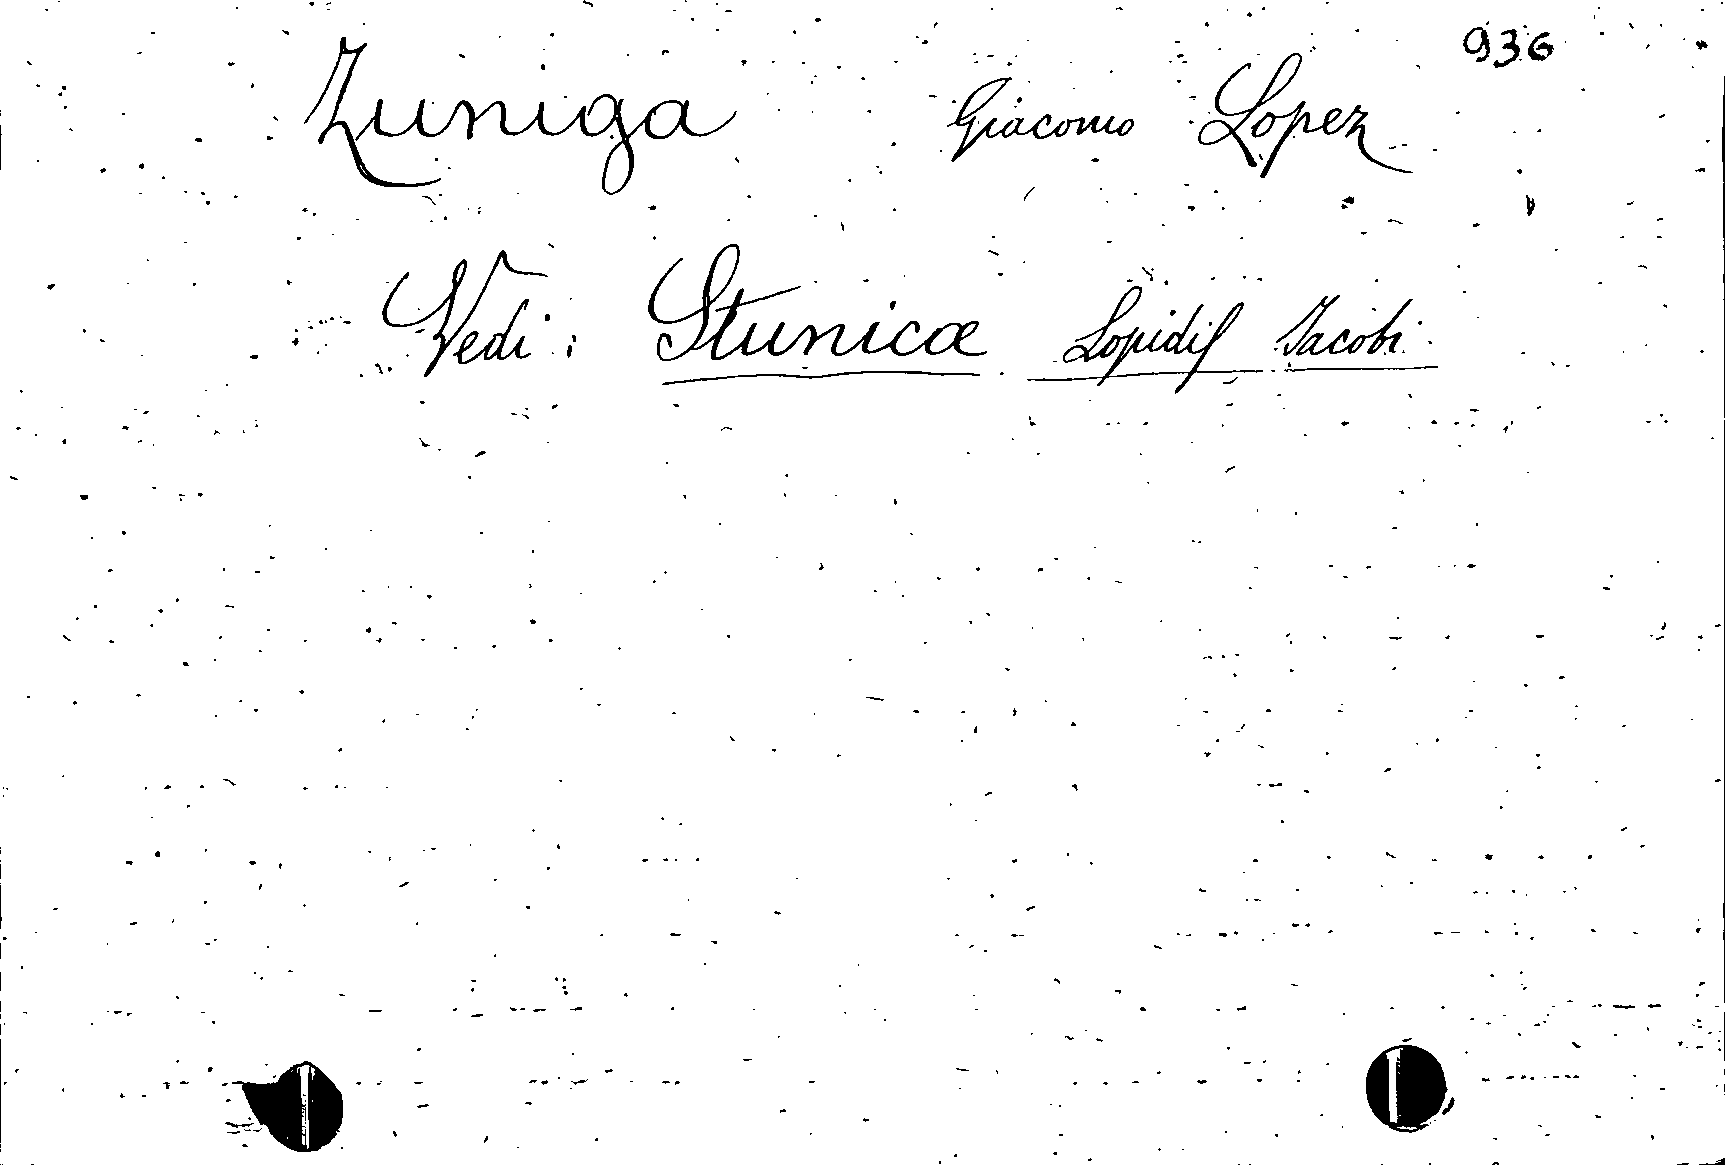 936
Zuniga Giacomo Lopez
Vedi: Stunicæ Lopidis Jacobi